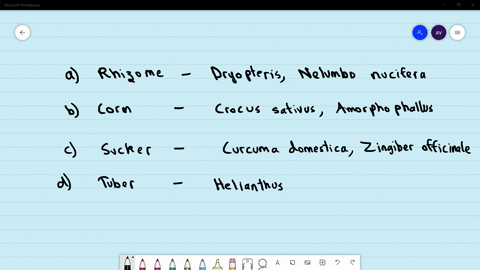 a) Rhizome - Dryopteris, Nelumbo nucifera
b) Corm - Crocus sativus, Amorphophallus
c) Sucker - Curcuma domestica, Zingiber officinale
d) Tuber - Helianthus
AV